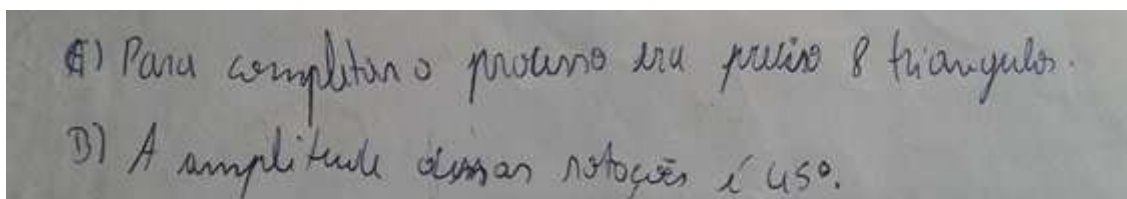 A) Para completar o processo era preciso 8 triangulos.
B) A amplitude dessas rotações é 45°.